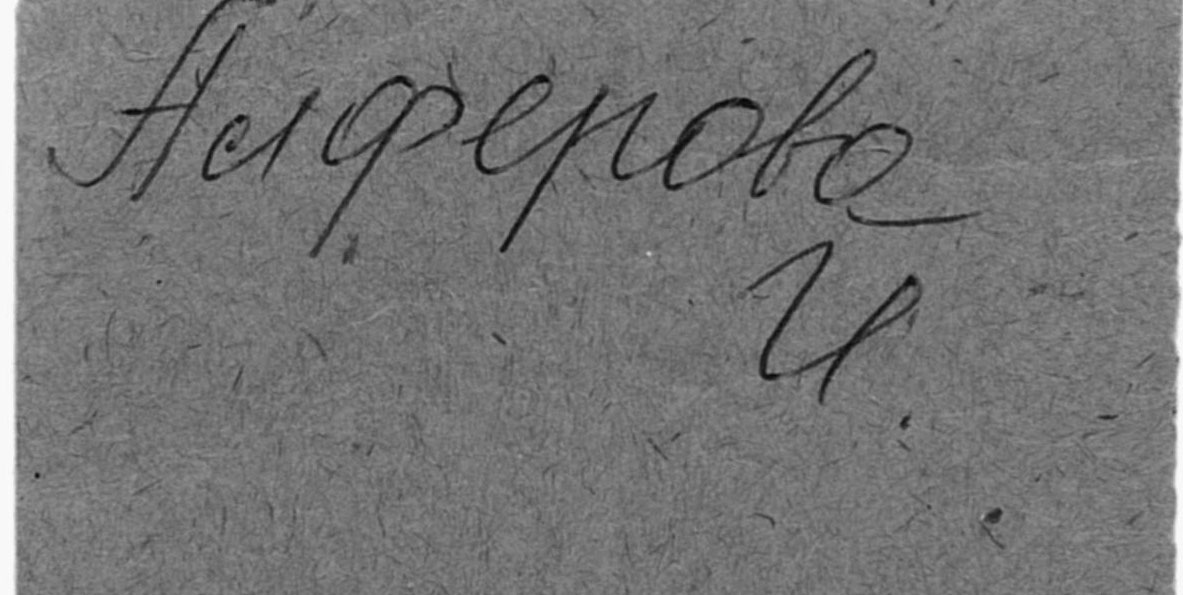 Алферова
И.